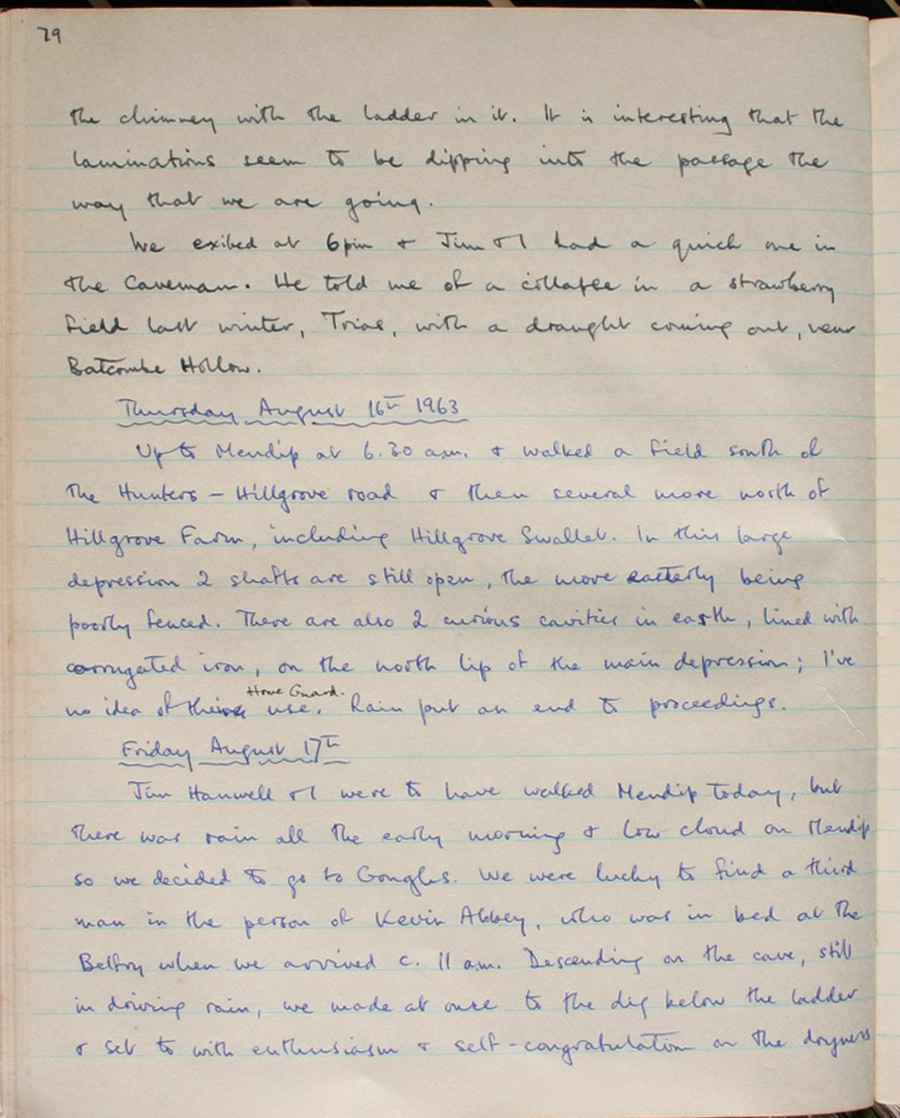 79
the chimney with the ladder in it. It is interesting that the
laminations seem to be dipping into the passage the
way that we are going.
We exited at 6pm & Jim & I had a quick one in
the Caveman. He told me of a collapse in a strawberry
field last winter, Trias, with a draught coming out, near
Batcombe Hollow.
Thursday August 16th 1963
Up to Mendip at 6.30 a.m. & walked a field south of
the Hunters - Hillgrove road & then several more north of
Hillgrove Farm, including Hillgrove Swallet. In this large
depression 2 shafts are still open, the more easterly being
poorly fenced. There are also 2 curious cavities in earth, lined with
corrugated iron, on the north lip of the main depression; I've
Home Guard.
no idea of their use. Rain put an end to proceedings.
Friday August 17th
Jim Hanwell & I were to have walked Mendip today, but
there was rain all the early morning & low cloud on Mendip
so we decided to go to Gough's. We were lucky to find a third
man in the person of Kevin Abbey, who was in bed at the
Belfry when we arrived c. 11 a.m. Descending on the cave, still
in driving rain, we made at once to the dig below the ladder
& set to with enthusiasm & self-congratulation on the dryness